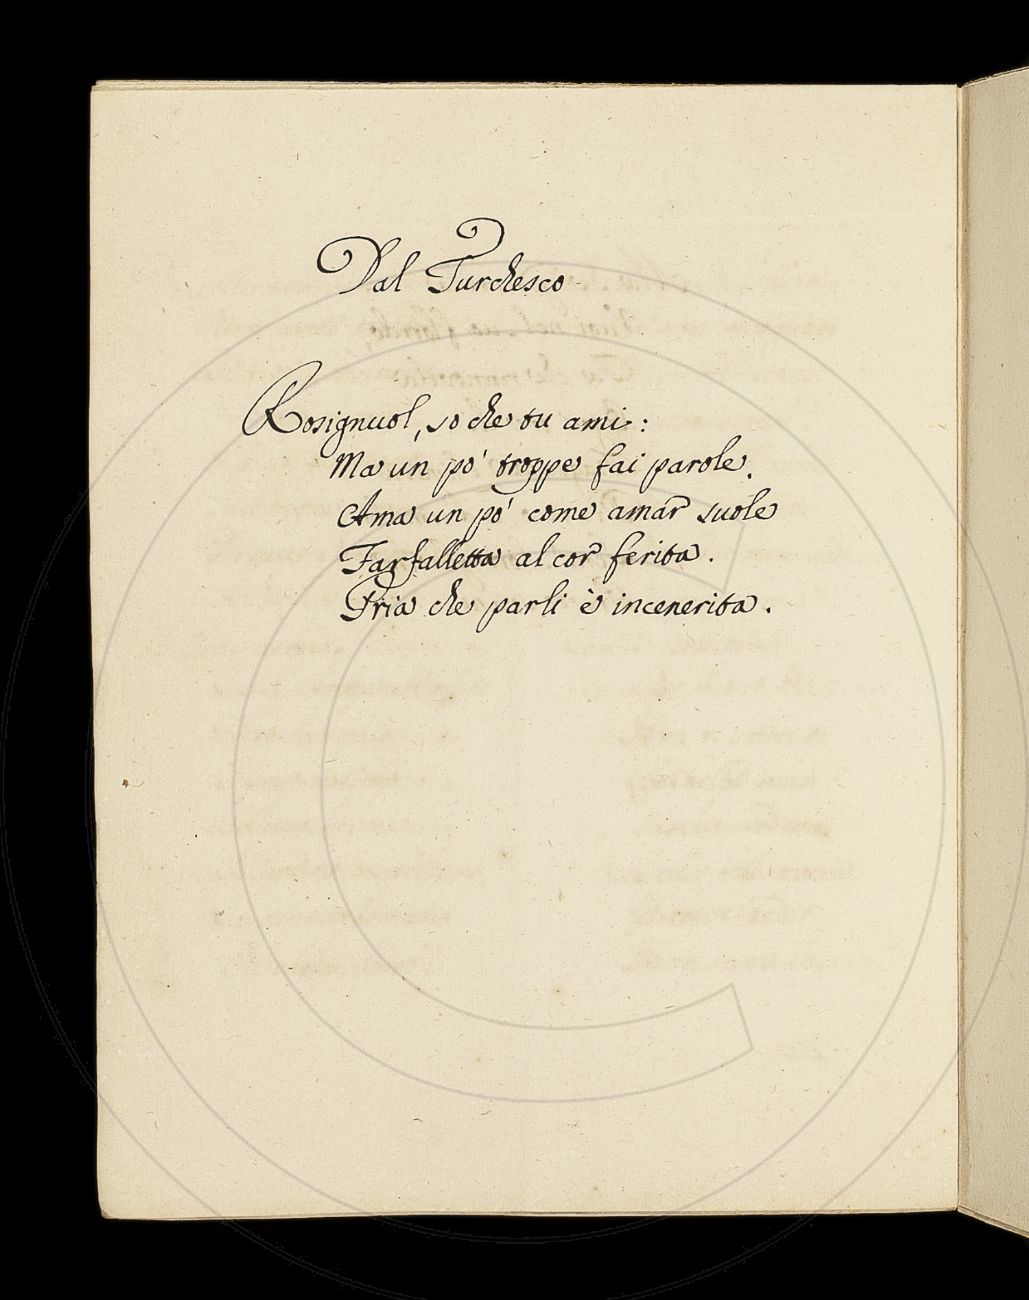 Dal Turchesco
Rosignuol, so che tu ami:
Ma un po' troppe fai parole.
Ama un po' come amar suole
Farfalletta al cor ferita.
Pria che parli è incenerita.